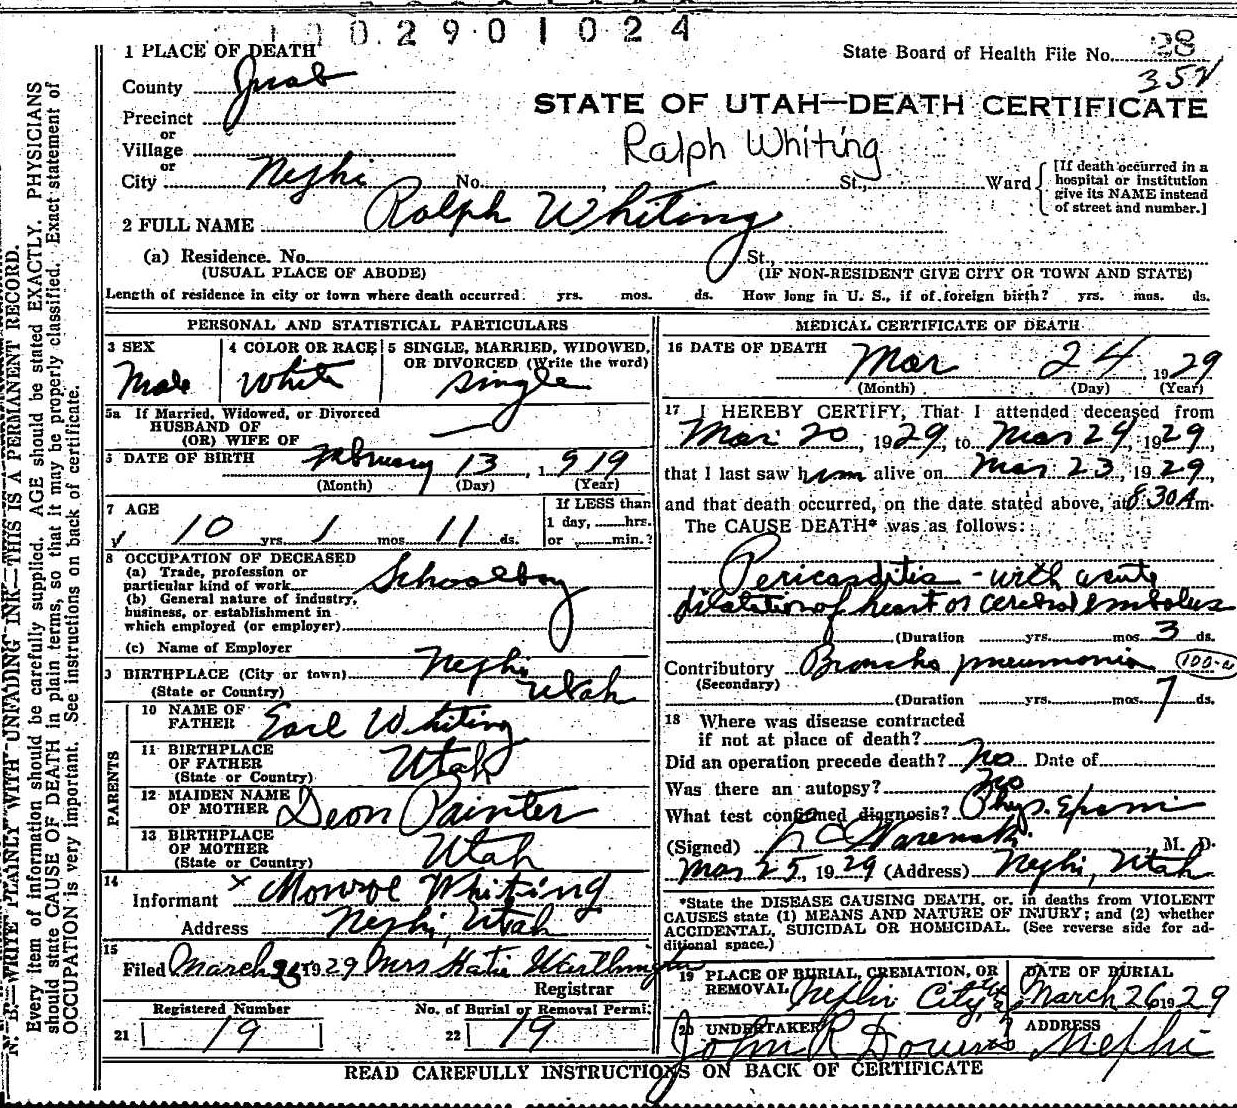 1002901024
1 PLACE OF DEATH
State Board of Health File No. 28
352
County Juab
STATE OF UTAH—DEATH CERTIFICATE
Precinct
or
Ralph Whiting
Village
or
City Nephi No. , St., Ward [If death occurred in a hospital or institution give its NAME instead of street and number.]
2 FULL NAME Ralph Whiting
(a) Residence. No. St.,
(USUAL PLACE OF ABODE) (IF NON-RESIDENT GIVE CITY OR TOWN AND STATE)
Length of residence in city or town where death occurred. yrs. mos. ds. How long in U. S., if of foreign birth? yrs. mos. ds.
PERSONAL AND STATISTICAL PARTICULARS
3 SEX 4 COLOR OR RACE 5 SINGLE, MARRIED, WIDOWED,
OR DIVORCED (Write the word)
Male White Single
5a If Married, Widowed, or Divorced
HUSBAND OF
(OR) WIFE OF —
6 DATE OF BIRTH February 13, 1919
(Month) (Day) (Year)
7 AGE If LESS than
10 yrs. 1 mos. 11 ds. 1 day, hrs.
or min.?
8 OCCUPATION OF DECEASED
(a) Trade, profession or
particular kind of work Schoolboy
(b) General nature of industry,
business, or establishment in
which employed (or employer)
(c) Name of Employer
9 BIRTHPLACE (City or town) Nephi
(State or Country) Utah
PARENTS
10 NAME OF
FATHER Earl Whiting
11 BIRTHPLACE
OF FATHER Utah
(State or Country)
12 MAIDEN NAME
OF MOTHER Deon Painter
13 BIRTHPLACE
OF MOTHER Utah
(State or Country)
14
Informant x Monroe Whiting
Address Nephi, Utah
15
Filed March 26 1929 Mrs Katie
Registrar
Registered Number No. of Burial or Removal Permit
21 19 22 19
MEDICAL CERTIFICATE OF DEATH
16 DATE OF DEATH Mar 24, 1929
(Month) (Day) (Year)
17 I HEREBY CERTIFY, That I attended deceased from
Mar 20, 1929, to Mar 24, 1929,
that I last saw him alive on Mar 23, 1929,
and that death occurred, on the date stated above, at 8:30 A m.
The CAUSE DEATH* was as follows:
Pericarditis - with acute
dilation of heart or cerebral embolus
(Duration yrs. mos. 3 ds.
Contributory Broncho pneumonia 100-a
(Secondary)
(Duration yrs. mos. 7 ds.
18 Where was disease contracted
if not at place of death?
Did an operation precede death? no Date of
Was there an autopsy? no
What test confirmed diagnosis? Phys. Exam
(Signed) , M. D.
Mar 25, 1929 (Address) Nephi, Utah
*State the DISEASE CAUSING DEATH, or, in deaths from VIOLENT
CAUSES state (1) MEANS AND NATURE OF INJURY; and (2) whether
ACCIDENTAL, SUICIDAL OR HOMICIDAL. (See reverse side for ad-
ditional space.)
19 PLACE OF BURIAL, CREMATION, OR DATE OF BURIAL
REMOVAL Nephi City, March 26 1929
20 UNDERTAKER ADDRESS
John R Nephi
READ CAREFULLY INSTRUCTIONS ON BACK OF CERTIFICATE
N. B.—WRITE PLAINLY WITH UNFADING INK—THIS IS A PERMANENT RECORD.
Every item of information should be carefully supplied. AGE should be stated EXACTLY. PHYSICIANS
should state CAUSE OF DEATH in plain terms, so that it may be properly classified. Exact statement of
OCCUPATION is very important. See instructions on back of certificate.